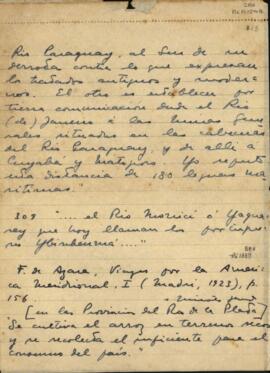 Rio Paraguay, al Sur de su
derrota contra lo que expresan
los tratados antiguos y moder-
nos. El otro es establecer por
tierra comunicación desde el Rio
(de) Janeiro á las minas Gene-
rales situadas en las cabeceras
del Rio Paraguay, y de alli á
Cuyabá y Matogroso. Yo reputo
esta distancia de 180 leguas ma-
ritimas."
309 "... el Rio Monici ó Yagua-
rey que hoy llaman los
Ybinheima...."
F. de Azara, Viajes por la Amé-
rica Meridional, I (Madrid, 1923), p.
156
[en las Provincias del Rio de la Plata]
"Se cultiva el arroz en terrenos secos
y se recolecta el suficiente para el
consumo del pais."